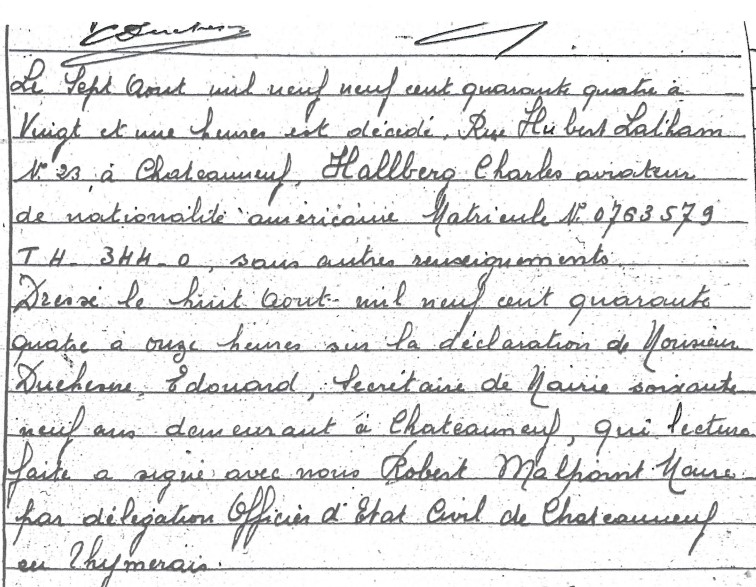 Duchesne
Le Sept Aout mil neuf neuf cent quarante quatre à
Vingt et une heures est décédé, Rue Hubert Latham
N° 23 à Chateauneuf, Hallberg Charles aviateur
de nationalité américaine Matricule N° 0763579
T H - 344 - 0, sans autres renseignements
Dressé le huit Aout mil neuf cent quarante
quatre à onze heures sur la déclaration de Monsieur
Duchesne, Edouard, Secrétaire de Mairie soixante
neuf ans demeurant à Chateauneuf, qui lecture
faite a signé avec nous Robert Malpoint Maire
par délégation Officier d'Etat Civil de Chateauneuf
en Thymerais.